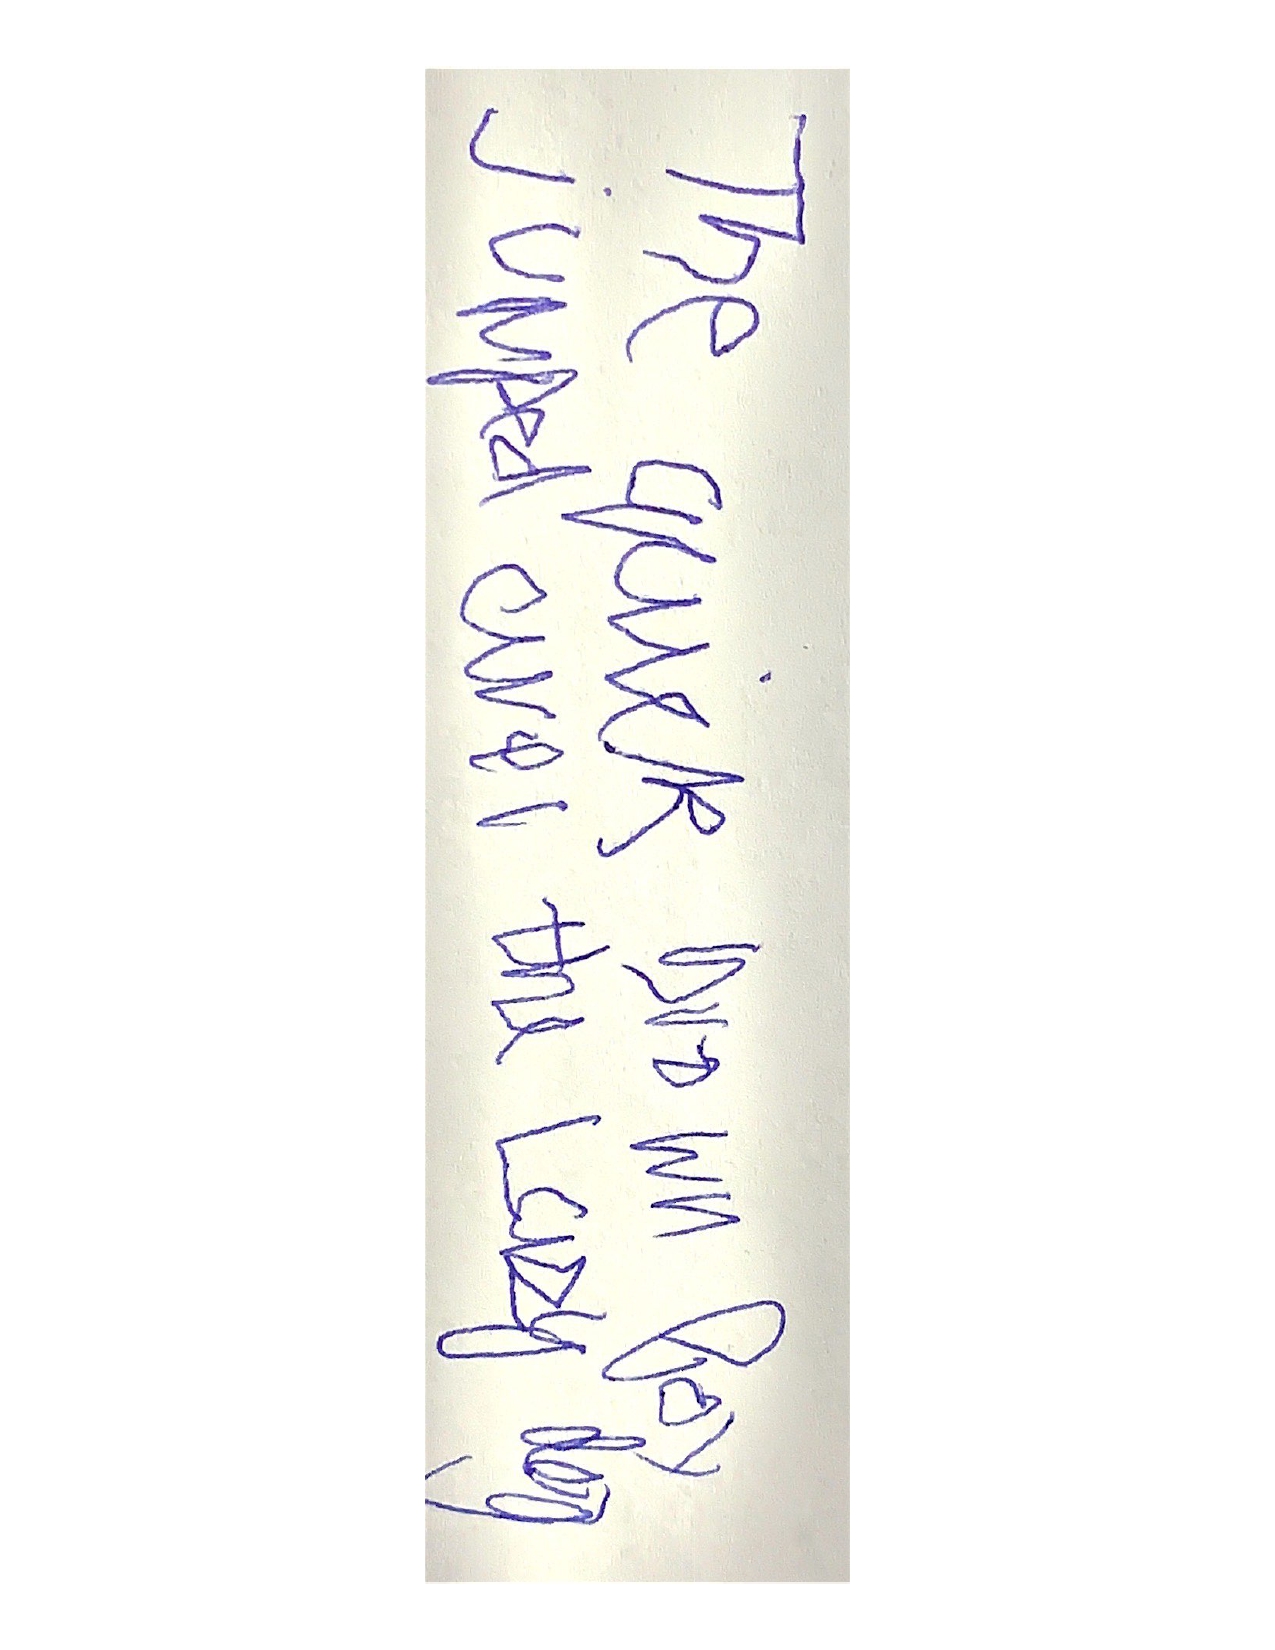 The quick brown fox
jumped over the Lazy dog